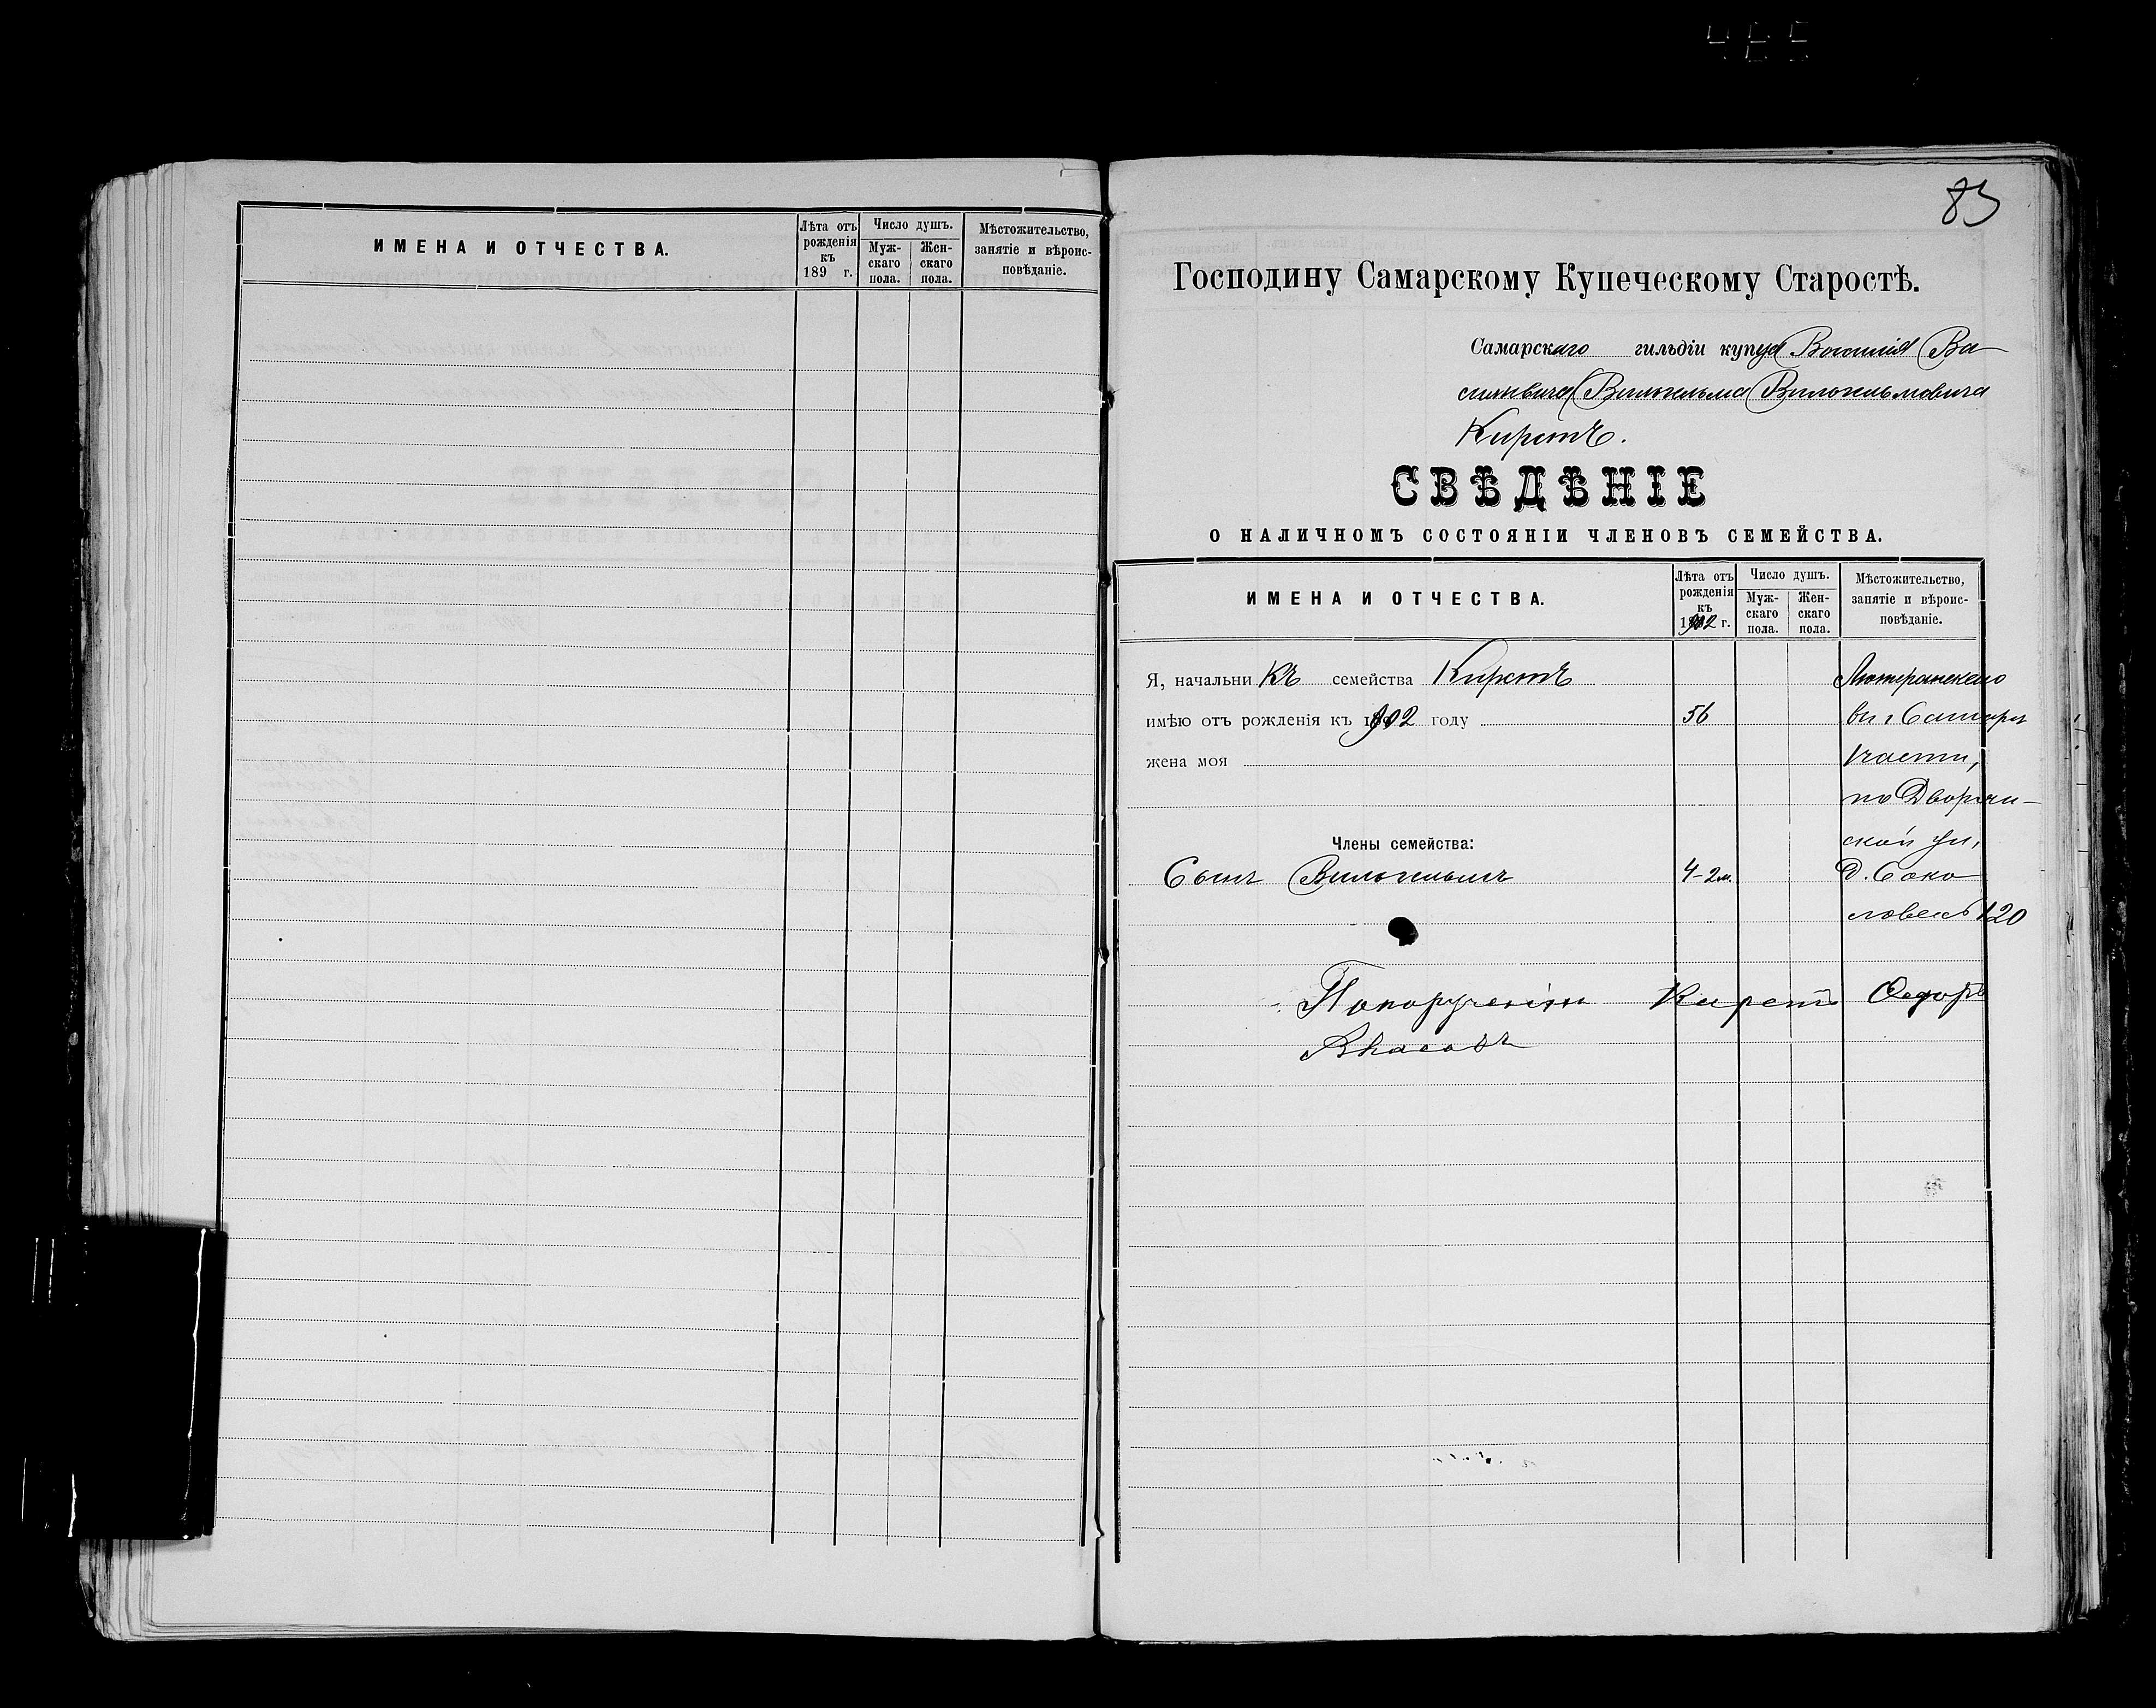 465
ИМЕНА И ОТЧЕСТВА.
Лѣта отъ рожденія къ 189 г.
Число душъ.
Муж-скаго пола.
Жен-скаго пола.
Мѣстожительство, занятіе и вѣроис-повѣданіе.
83
Господину Самарскому Купеческому Старостѣ.
Самарскаго гильдіи купца Василія Ва-
сильевича (Вильгельма Вильгельмовича
Кирстъ.
СВѢДѢНІЕ
О НАЛИЧНОМЪ СОСТОЯНІИ ЧЛЕНОВЪ СЕМЕЙСТВА.
ИМЕНА И ОТЧЕСТВА.
Лѣта отъ рожденія къ 1902 г.
Число душъ.
Муж-скаго пола.
Жен-скаго пола.
Мѣстожительство, занятіе и вѣроис-повѣданіе.
Я, начальникъ семейства Кирстъ Лютеранскаго
имѣю отъ рожденія къ 1902 году 56
жена моя части,
по Дворян-
Члены семейства: ской ул,
Сынъ Вильгельмъ 4-2м. д. Соко
120
По порученію Кирстъ Федоръ
Власовъ